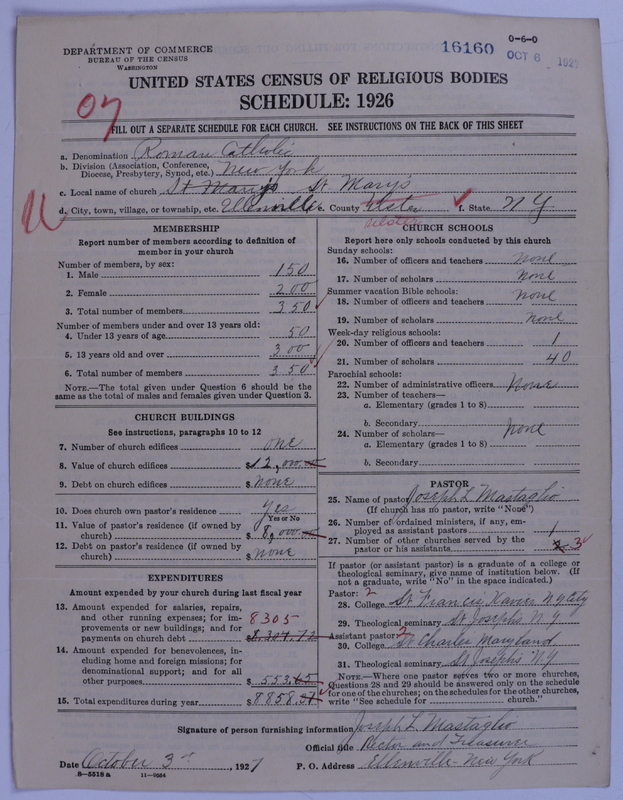 DEPARTMENT OF COMMERCE
BUREAU OF THE CENSUS
WASHINGTON
16160
0-6-0
OCT 6 1927
UNITED STATES CENSUS OF RELIGIOUS BODIES
SCHEDULE: 1926
07
FILL OUT A SEPARATE SCHEDULE FOR EACH CHURCH. SEE INSTRUCTIONS ON THE BACK OF THIS SHEET
a. Denomination Roman Catholic
b. Division (Association, Conference, Diocese, Presbytery, Synod, etc.) New York
c. Local name of church St Mary's St Mary's
d. City, town, village, or township, etc. Ellenville e. County Ulster f. State N Y
Ulster
MEMBERSHIP
Report number of members according to definition of
member in your church
Number of members, by sex:
1. Male 150
2. Female 200
3. Total number of members 350
Number of members under and over 13 years old:
4. Under 13 years of age 50
5. 13 years old and over 300
6. Total number of members 350
NOTE.—The total given under Question 6 should be
the same as the total of males and females given under Question 3.
CHURCH BUILDINGS
See instructions, paragraphs 10 to 12
7. Number of church edifices one
8. Value of church edifices $12,000
9. Debt on church edifices $ none
10. Does church own pastor's residence? yes
Yes or No
11. Value of pastor's residence (if owned by
church) $ 8,000
12. Debt on pastor's residence (if owned by
church) $ none
EXPENDITURES
Amount expended by your church during last fiscal year
13. Amount expended for salaries, repairs,
and other running expenses; for im-
provements or new buildings; and for
payments on church debt 8305
$ 8,304.72
14. Amount expended for benevolences, in-
cluding home and foreign missions; for
denominational support; and for all
other purposes $ 553.65
15. Total expenditures during year $ 8858.37
CHURCH SCHOOLS
Report here only schools conducted by this church
Sunday schools:
16. Number of officers and teachers none
17. Number of scholars none
Summer vacation Bible schools:
18. Number of officers and teachers none
19. Number of scholars none
Week-day religious schools:
20. Number of officers and teachers 1
21. Number of scholars 40
Parochial schools:
22. Number of administrative officers None
23. Number of teachers—
a. Elementary (grades 1 to 8)
b. Secondary
24. Number of scholars— none
a. Elementary (grades 1 to 8)
b. Secondary
PASTOR
25. Name of pastor Joseph L Mastaglio
(If church has no pastor, write "None")
26. Number of ordained ministers, if any, em-
ployed as assistant pastors 1
27. Number of other churches served by the
pastor or his assistants 3
If pastor (or assistant pastor) is a graduate of a college or
theological seminary, give name of institution below. (If
not a graduate, write "No" in the space indicated.)
Pastor: 2
28. College St Francis Xavier N.Y. City
29. Theological seminary St Josephs N.Y
Assistant pastor: 2
30. College St Charles Maryland
31. Theological seminary St Josephs N.Y
NOTE.—Where one pastor serves two or more churches,
Questions 28 and 29 should be answered only on the schedule
for one of the churches; on the schedules for the other churches,
write "See schedule for church."
Signature of person furnishing information Joseph L Mastaglio
Official title Rector and Treasurer
Date October 3rd, 1927 P. O. Address Ellenville New York
8—5518 a 11—9564